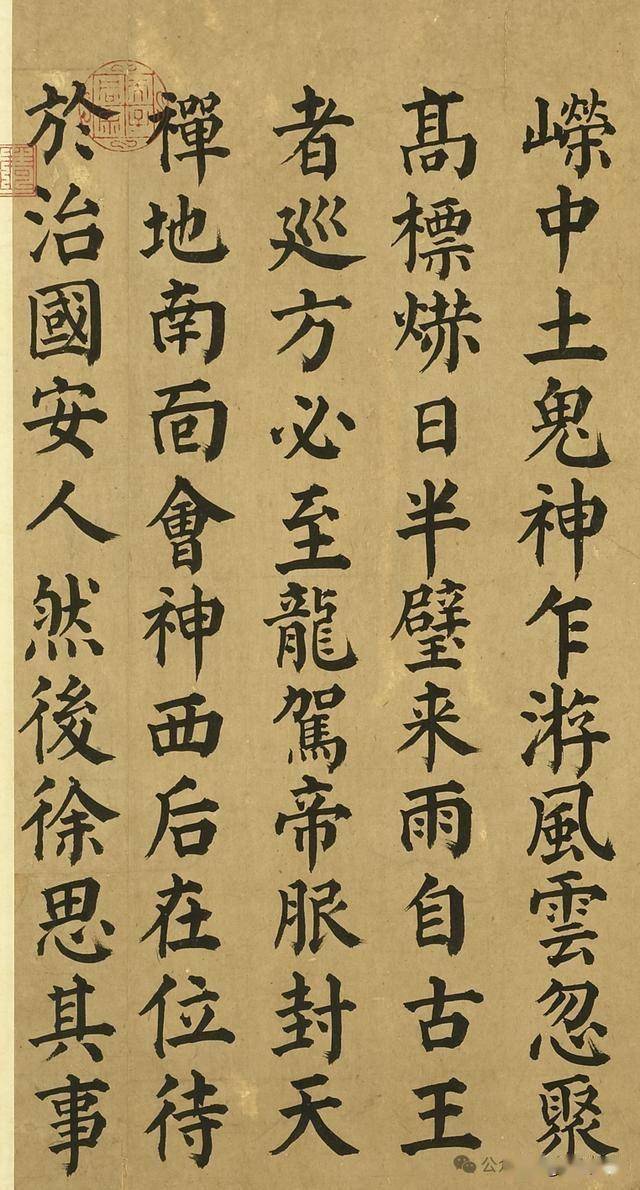 嶸中土鬼神乍游風雲忽聚
髙標焃日半壁来雨自古王
者巡方必至龍駕帝服封天
禪地南面會神西后在位待
於治國安人然後徐思其事